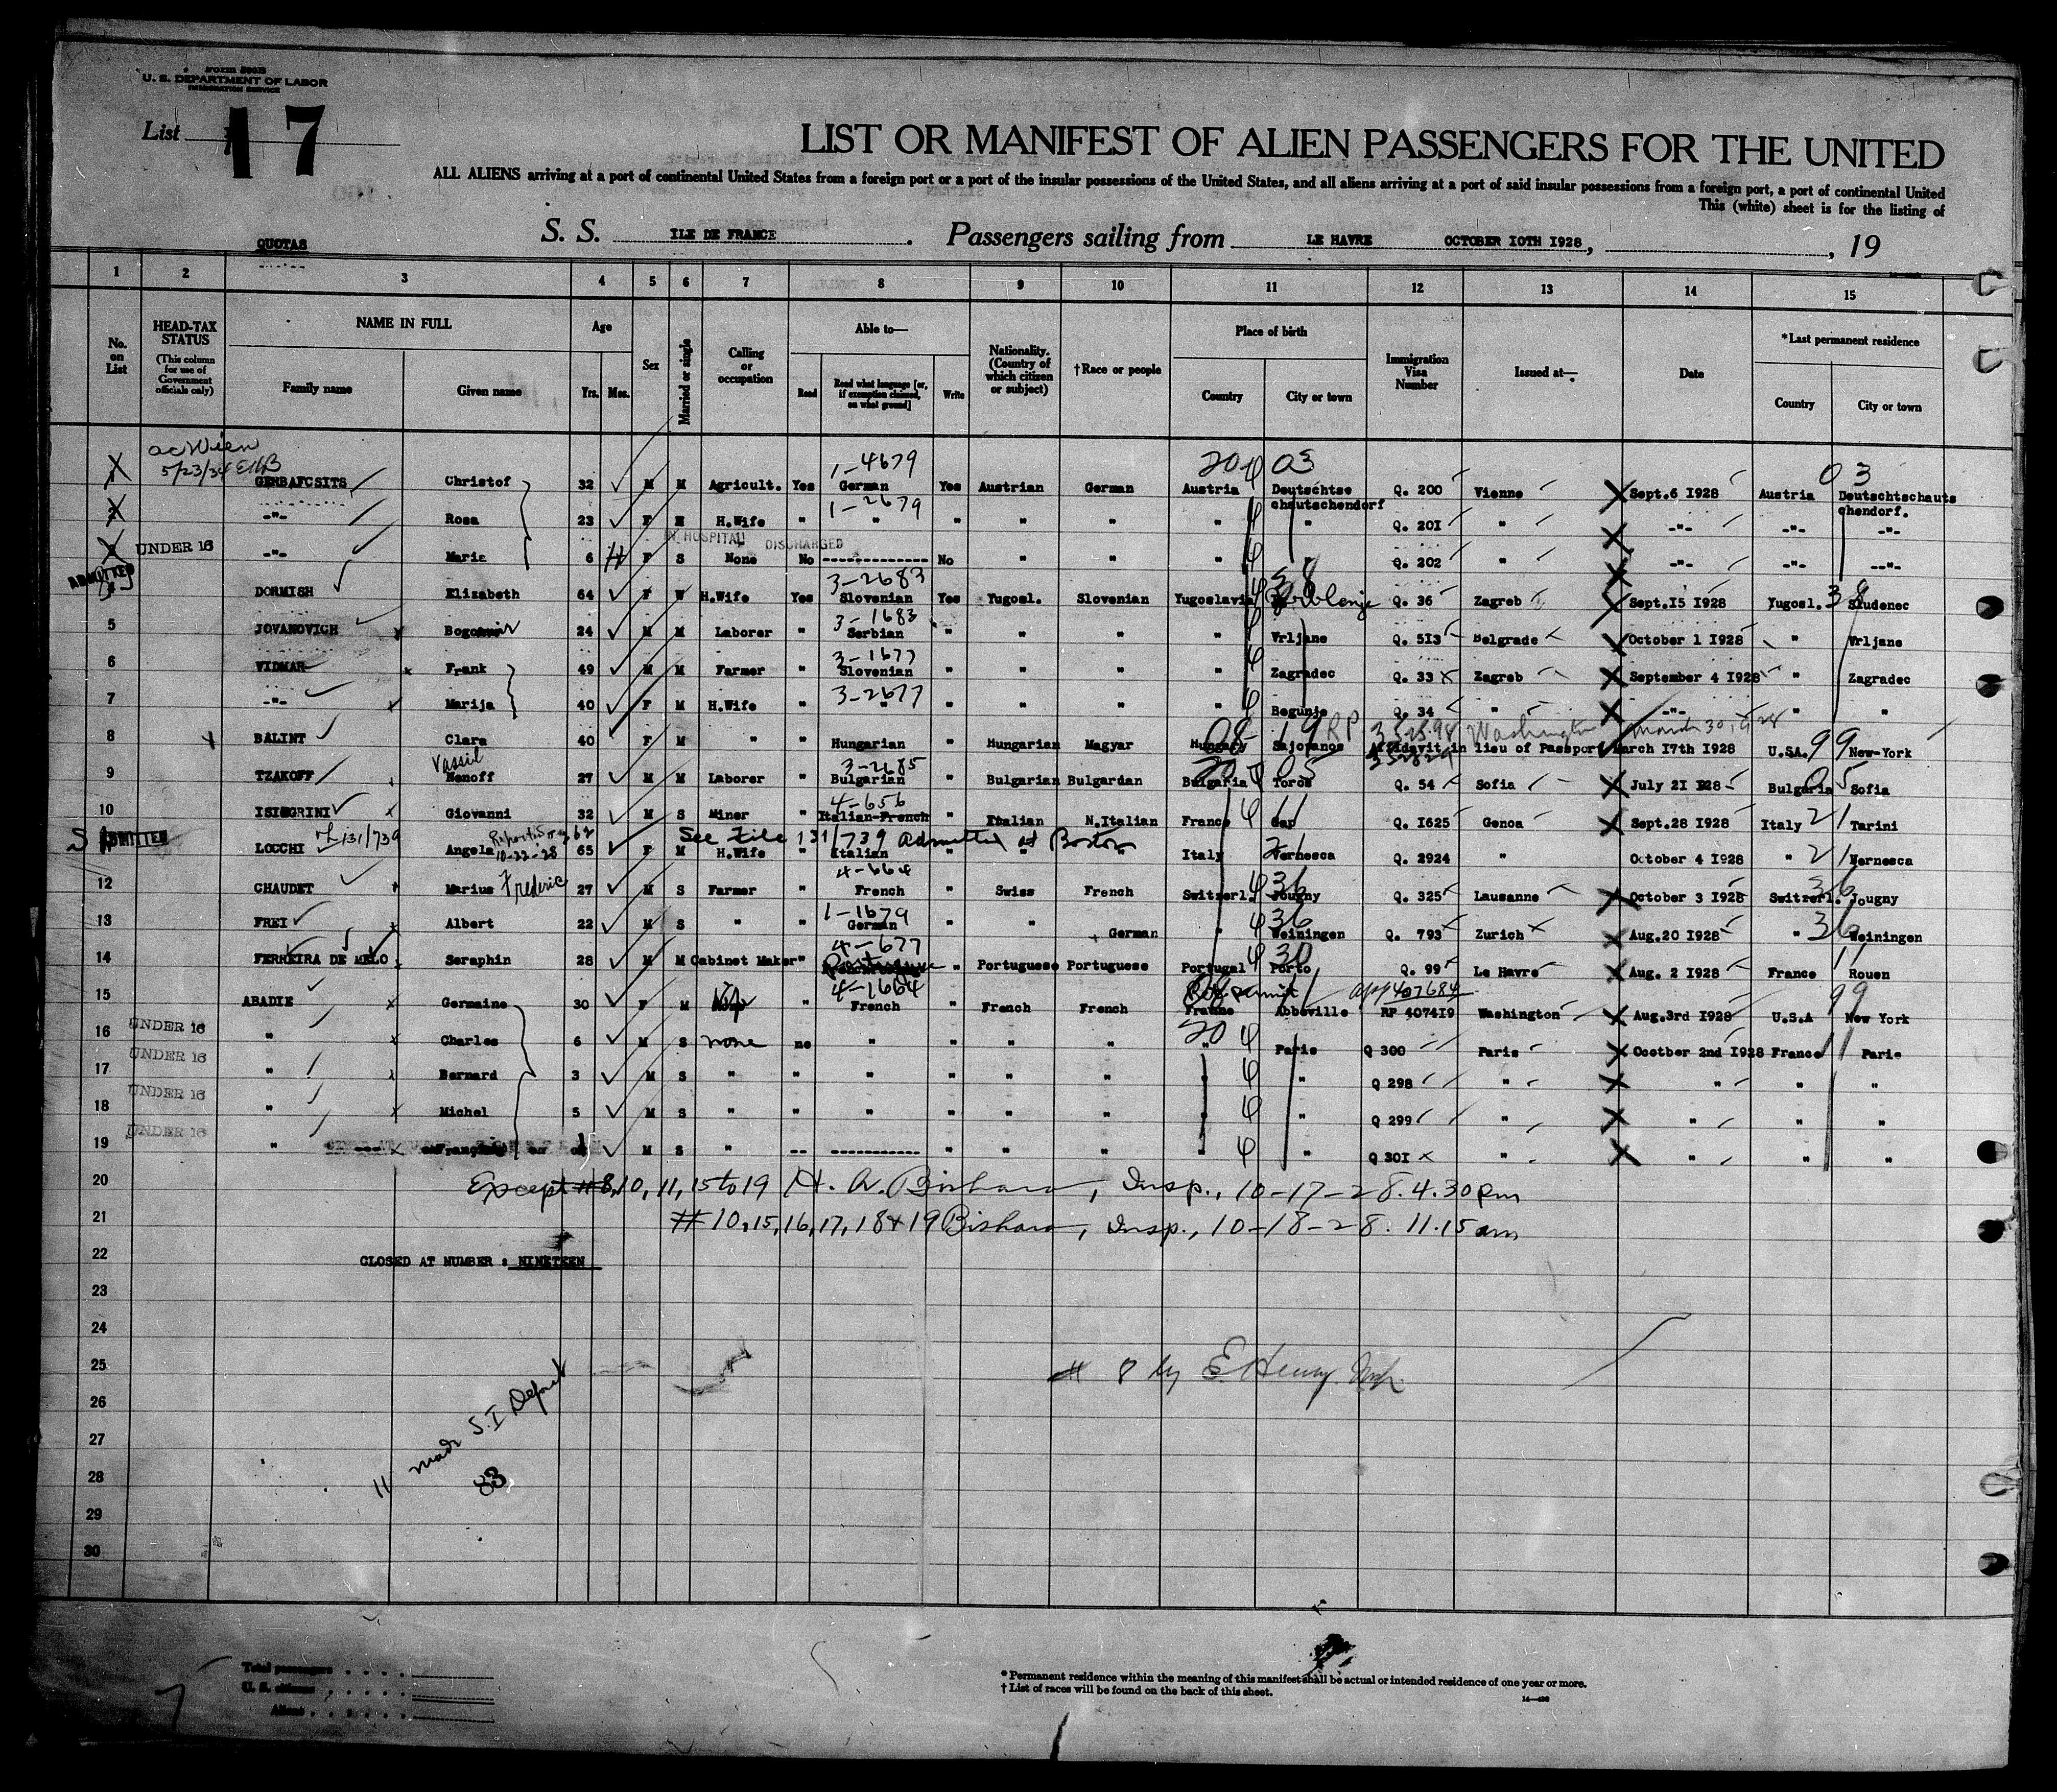 Form 500B
U. S. DEPARTMENT OF LABOR
IMMIGRATION SERVICE
List 17
LIST OR MANIFEST OF ALIEN PASSENGERS FOR THE UNITED
ALL ALIENS arriving at a port of continental United States from a foreign port or a port of the insular possessions of the United States, and all aliens arriving at a port of said insular possessions from a foreign port, a port of continental United
This (white) sheet is for the listing of
QUOTAS S. S. ILE DE FRANCE . Passengers sailing from LE HAVRE OCTOBER IOTH I928, , 19
1 2 3 4 5 6 7 8 9 10 11 12 13 14 15
No. on List HEAD-TAX STATUS (This column for use of Government officials only) NAME IN FULL Family name Given name Age Yrs. Mos. Sex Married or single Calling or occupation Able to— Read Read what language [or, if exemption claimed, on what ground] Write Nationality. (Country of which citizen or subject) †Race or people Place of birth Country City or town Immigration Visa Number Issued at— Date *Last permanent residence Country City or town
5/23/34
1-4679 20 03 03
GERBAFCSITS Christof 32 M M Agricult. Yes German Yes Austrian German Austria Deutschtse chautschendorf Q. 200 Vienne Sept.6 I928 Austria Deutschtschauts chendorf.
1-2679
-"- Rosa 23 F M H.Wife " " " " " " " Q. 20I " -"- -"- -"-
IN HOSPITAL DISCHARGED
UNDER 16 -"- Maria 6 F S None No ------------ No " " " " Q. 202 " -"- -"- --"-
ADMITTED 3-2683 38
DORMISH Elizabeth 64 F W H.Wife Yes Slovenian Yes Yugosl. Slovenian Yugoslavia Q. 36 Zagreb Sept.I5 I928 Yugosl. 38 Studenec
3-1683
5 JOVANOVICH 24 M M Laborer " Serbian " " " " Vrljane Q. 5I3 Belgrade October 1 I928 " Vrljane
3-1677
6 VIDMAR Frank 49 M M Farmer " Slovenian " " " " Zagradec Q. 33 Zagreb September 4 I928 " Zagradec
3-2677
7 -"- Marija 40 F M H.Wife " " " " " " Begunje Q. 34 " -"- " "
08 19 RP Washington March 30, 1928
8 BALINT Clara 40 F M " " Hungarian " Hungarian Magyar Hungary Sajovanos Affidavit in lieu of Passport March I7th I928 U.S.A. 99 New-York
Vassil 3-2685 20 05
9 TZAKOFF Nenoff 27 M M Laborer " Bulgarian " Bulgarian Bulgardan Bulgaria Toros Q. 54 Sofia July 2I I928 Bulgaria 05 Sofia
4-656
10 ISINGRINI Giovanni 32 M S Miner " Italian-French " Italian N.Italian France Gap Q. I625 Genoa Sept.28 I928 Italy 21 Tarini
See File 131/739 Admitted at Boston
S ADMITTED LOCCHI 131/739 Angela 10-22-28 65 F M H.Wife " Italian " " " Italy Vernesca Q. 2924 " October 4 I928 " 21 Vernesca
4-664
12 CHAUDET Marius Frederic 27 M S Farmer " French " Swiss French Switzerl. 36 Jougny Q. 325 Lausanne October 3 I928 Switzerl. 36 Jougny
1-1679
13 FREI Albert 22 M S " " German " " German " 36 Weiningen Q. 793 Zurich Aug.20 I928 " 36 Weiningen
4-677
14 FERREIRA DE MELO Seraphin 28 M M Cabinet Maker " Portuguese " Portuguese Portuguese Portugal 30 Porto Q. 99 Le Havre Aug. 2 I928 France 11 Rouen
4-1664 app 407684
15 ABADIE Germaine 30 F M " French " French French France Abbeville RP 4074I9 Washington Aug.3rd I928 U.S.A 99 New York
UNDER 16 20
16 " Charles 6 M S none no " " " " " Paris Q 300 Paris Ocotber 2nd I928 France 11 Paris
UNDER 16
17 " Bernard 3 M S " " " " " " " Q 298 " " " "
UNDER 16
18 " Michel 5 M S " " " " " " " Q 299 " " " "
UNDER 16
19 " M S " -- ----------- " " " " Q 30I " " " "
20 Except #8, 10, 11, 15 to 19 H. A. Bishara, Insp., 10-17-28. 4.30pm
21 #10, 15, 16, 17, 18 & 19 Bishara, Insp., 10-18-28. 11.15am
22 CLOSED AT NUMBER : NINETEEN
23
24
25 # 8 by E Henry
26
27
28 11 made S.I Dept 83
29
30
Total passengers . . . .
U. S. citizens . . . .
Aliens . . . .
* Permanent residence within the meaning of this manifest shall be actual or intended residence of one year or more.
† List of races will be found on the back of this sheet.